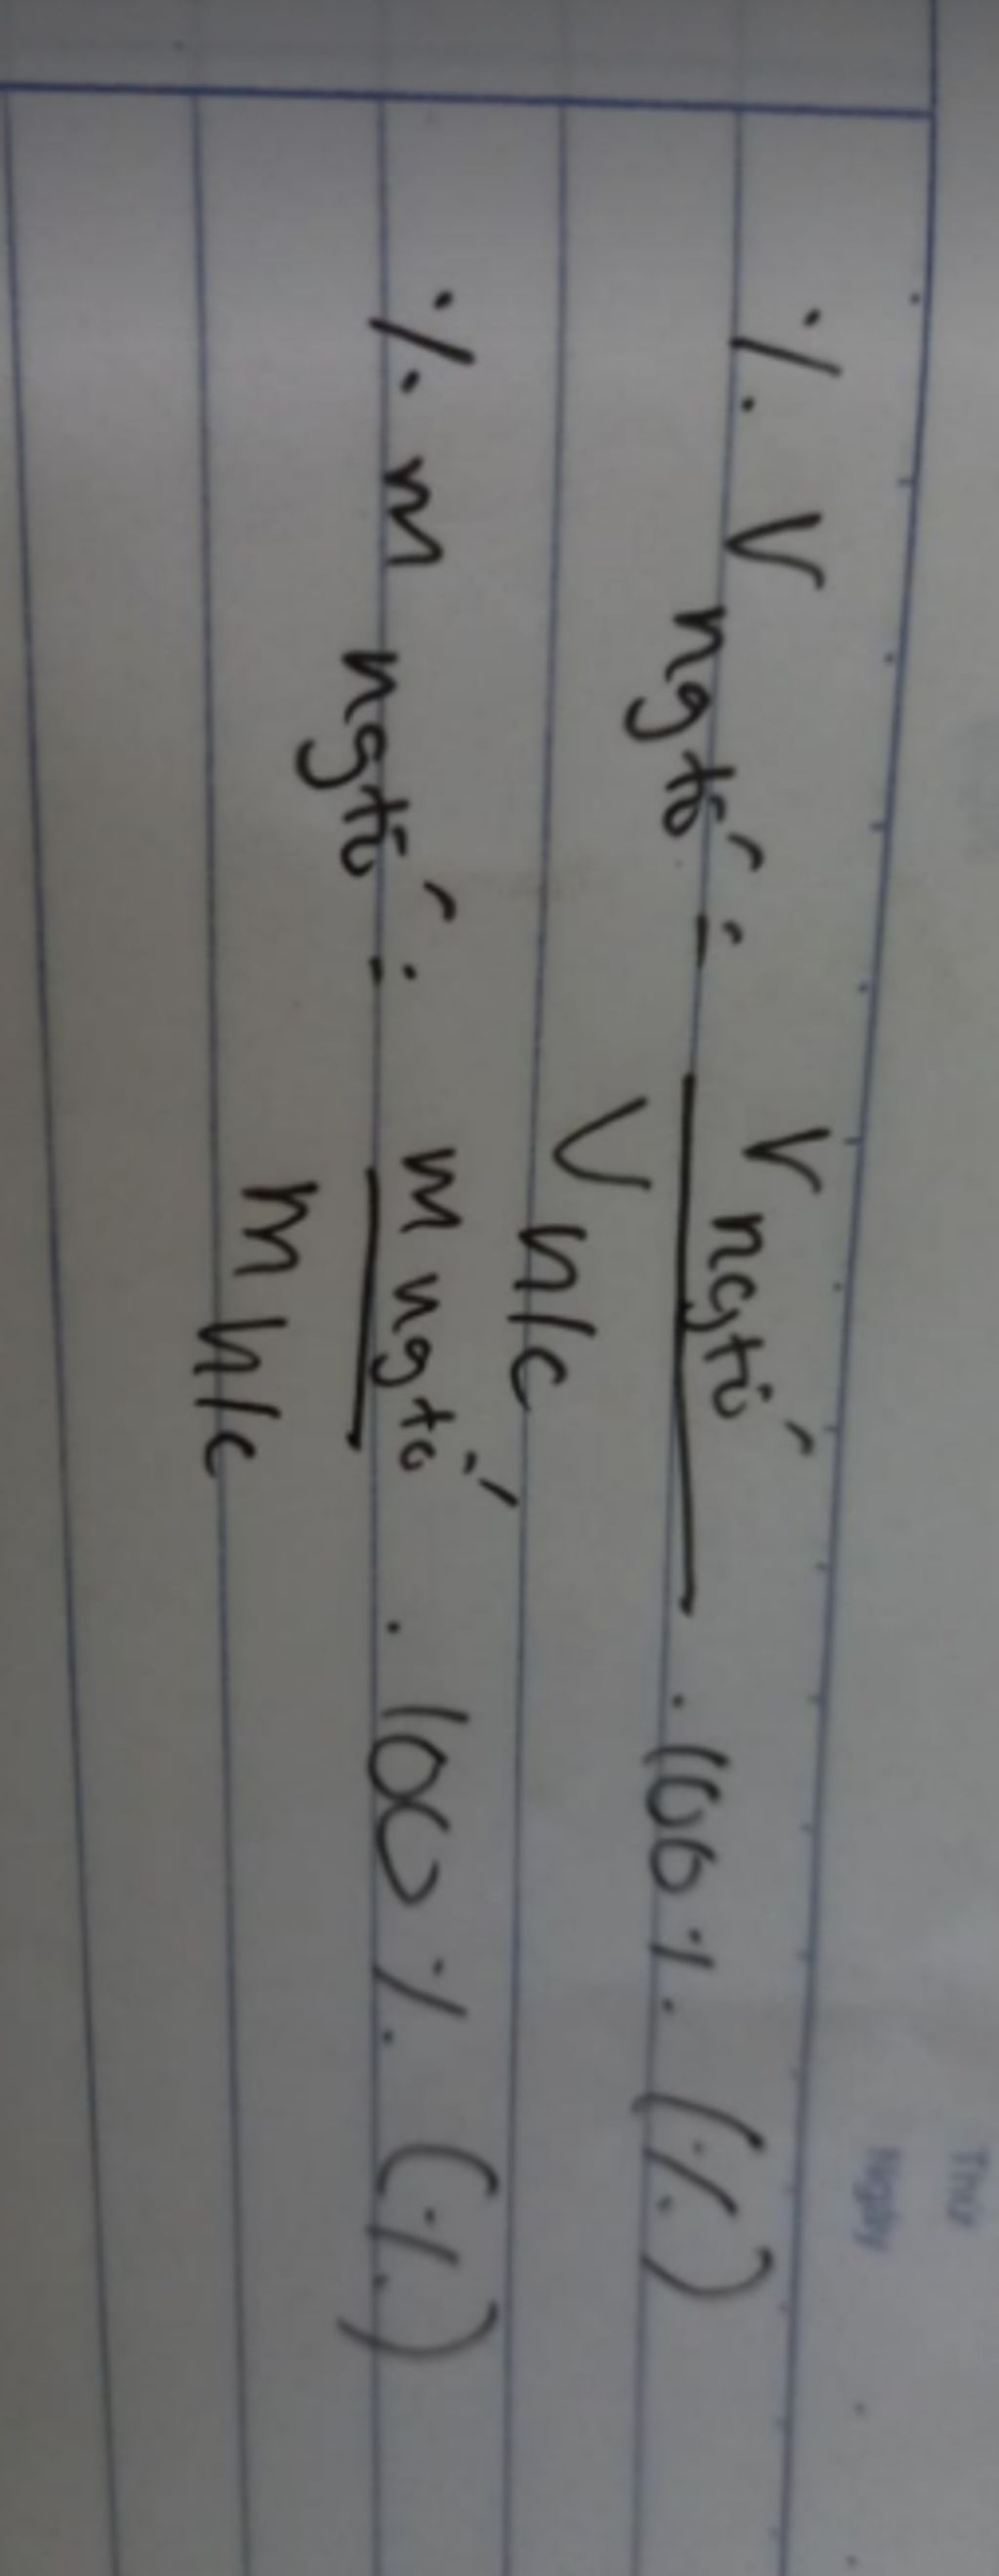 % V ngtố = V ngtố / V h/c . 100% (%)
% m ngtố = m ngtố / m h/c . 100% (%)
Thứ
Ngày